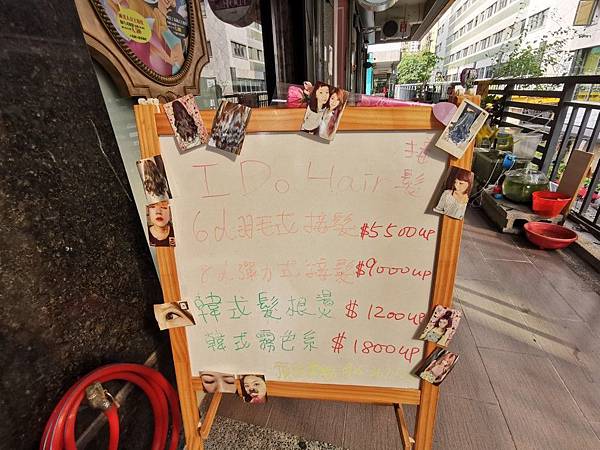 I Do Hair 接髮
6d羽毛式接髮 $5500up
式接髮 $9000up
韓式髮根燙 $1200up
韓式霧色系 $1800up